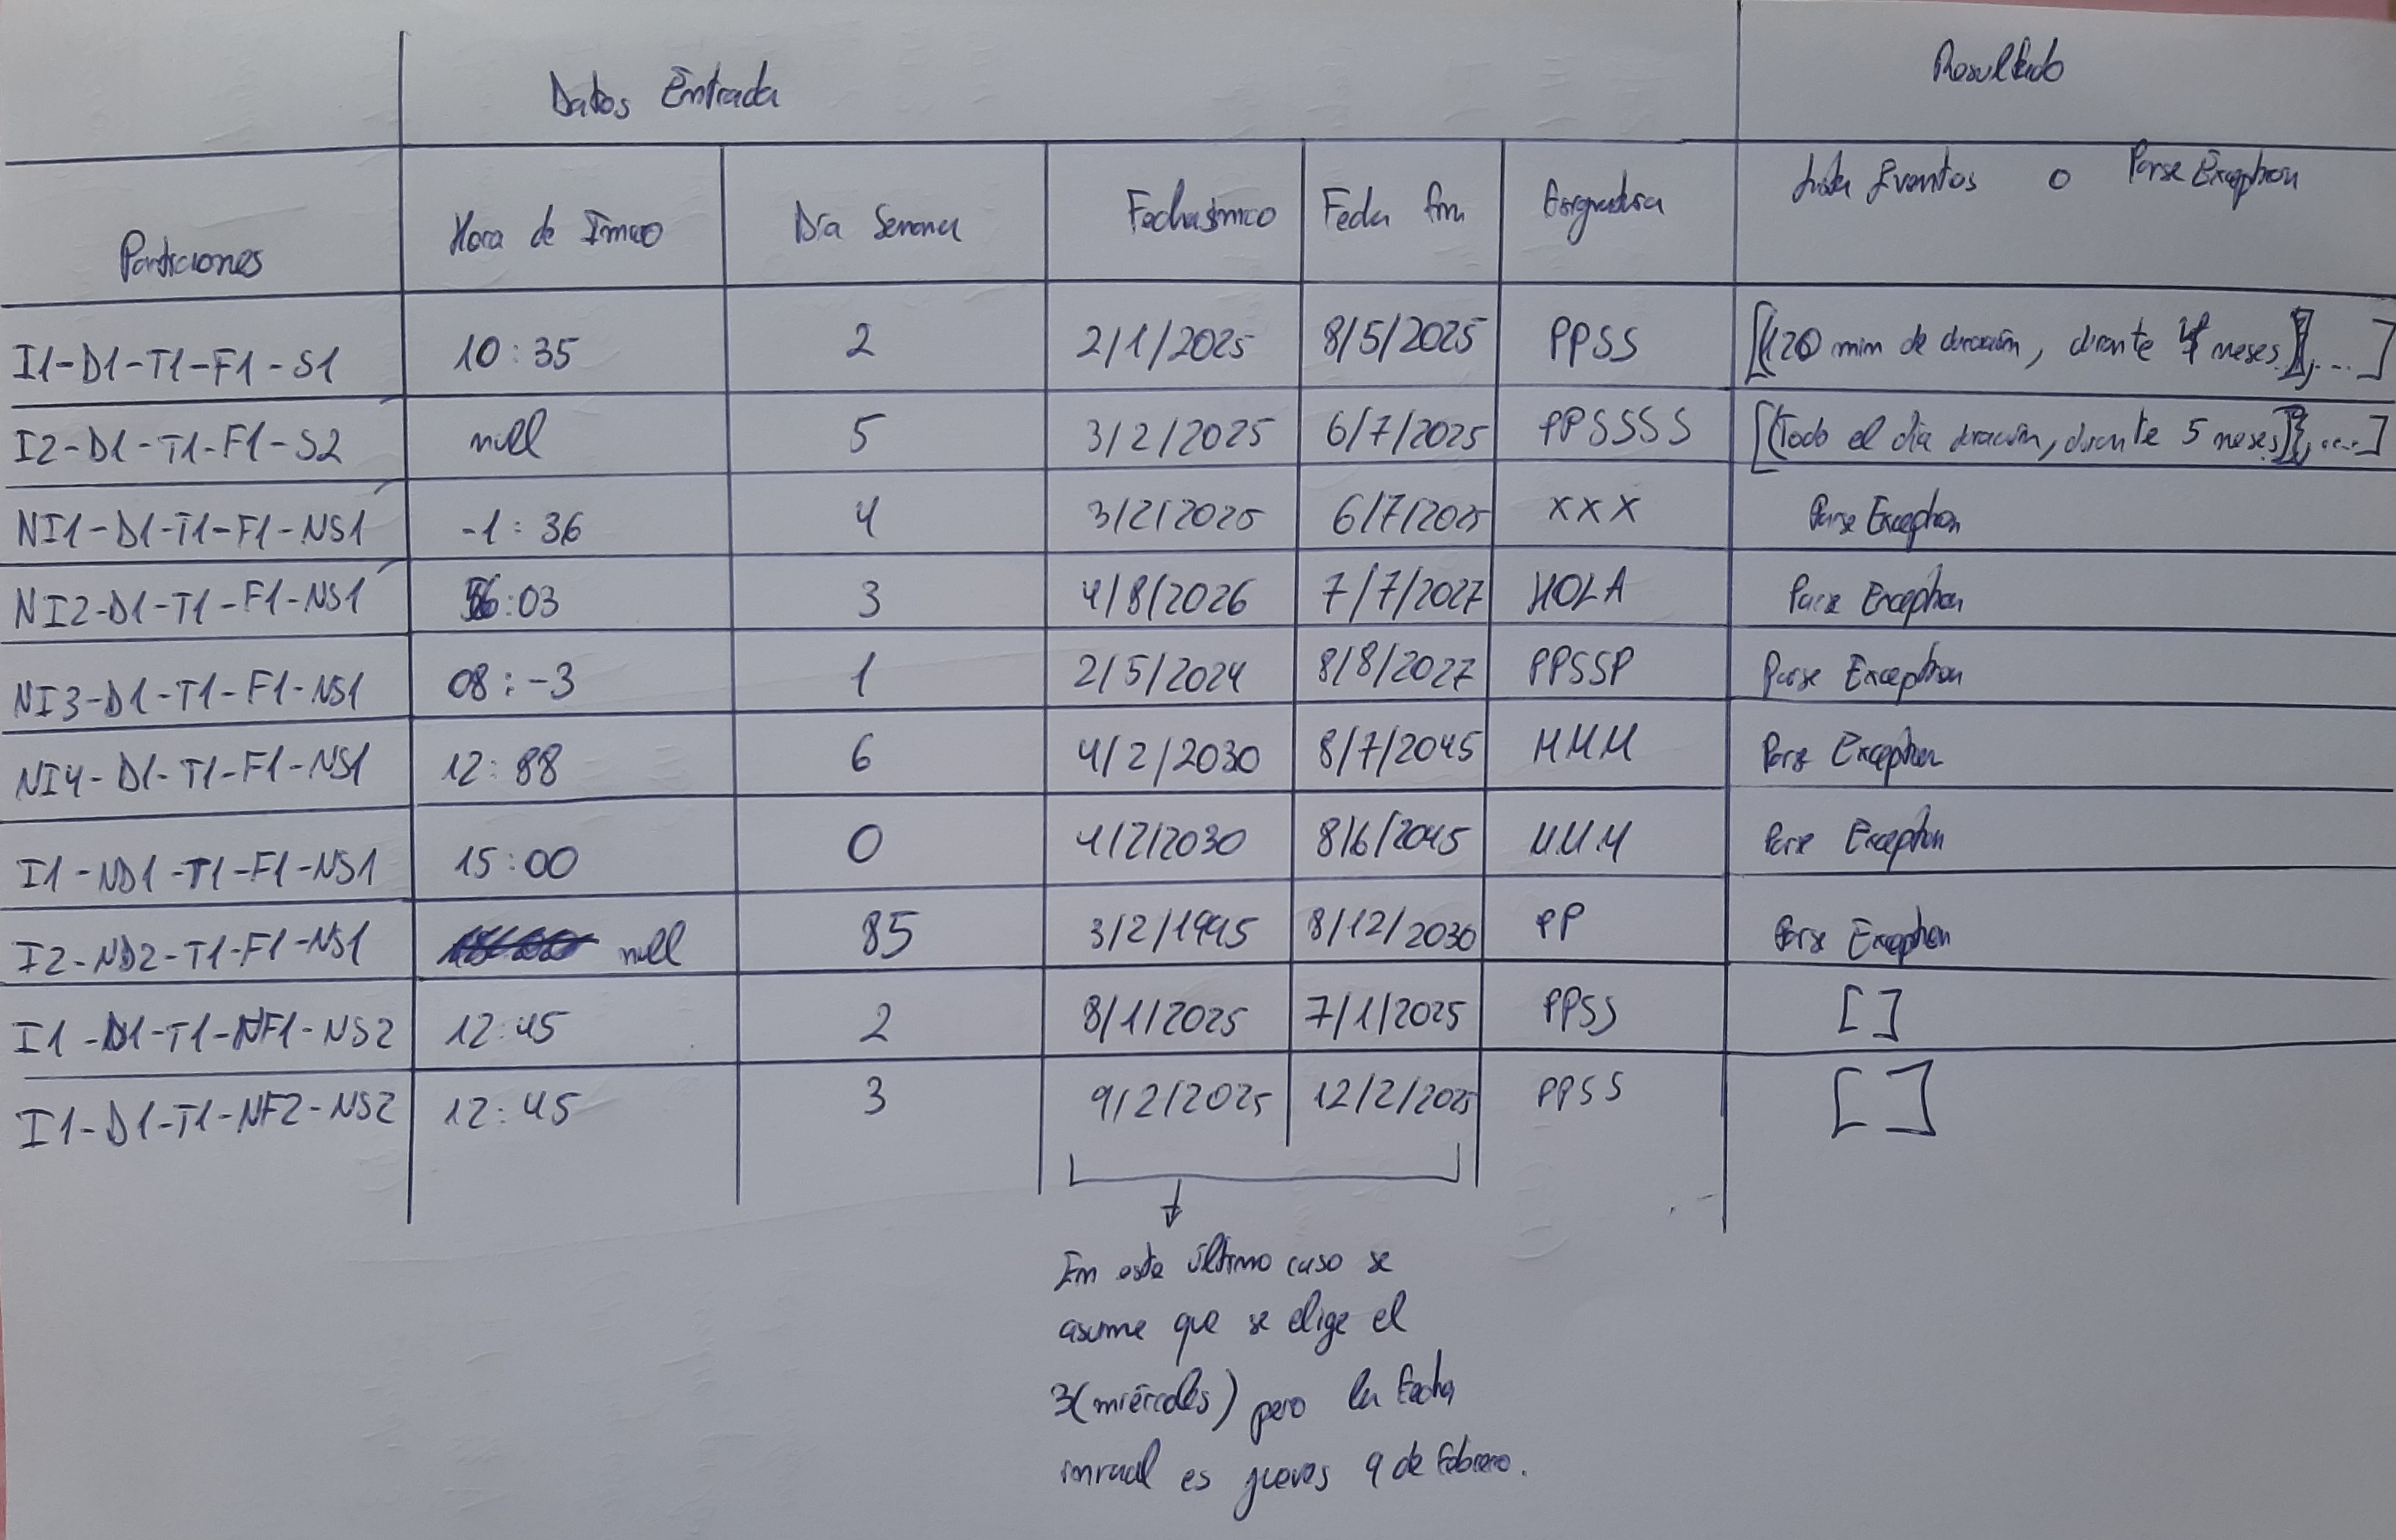 Datos Entrada
Resultado
Particiones
Hora de Inicio
Día Semana
Fecha inicio
Fecha fin
Asignatura
Lista Eventos o ParseException
I1-D1-T1-F1-S1 10:35 2 2/1/2025 8/5/2025 PPSS [(120 min de duración, durante 4 meses),...]
I2-D1-T1-F1-S2 null 5 3/2/2025 6/7/2025 PPSSSS [(Todo el día duración, durante 5 meses),...]
NI1-D1-T1-F1-NS1 -1:36 4 3/2/2025 6/7/2025 XXX Parse Exception
NI2-D1-T1-F1-NS1 56:03 3 4/8/2026 7/7/2027 HOLA Parse Exception
NI3-D1-T1-F1-NS1 08:-3 1 2/5/2024 8/8/2027 PPSSP Parse Exception
NI4-D1-T1-F1-NS1 12:88 6 4/2/2030 8/7/2045 MMM Parse Exception
I1-ND1-T1-F1-NS1 15:00 0 4/2/2030 8/6/2045 MMM Parse Exception
I2-ND2-T1-F1-NS1 null 85 3/2/1995 8/12/2030 PP Parse Exception
I1-D1-T1-NF1-NS2 12:45 2 8/1/2025 7/1/2025 PPSS []
I1-D1-T1-NF2-NS2 12:45 3 9/2/2025 12/2/2025 PPSS []
En este último caso se
asume que se elige el
3(miércoles) pero la fecha
inicial es jueves 9 de febrero.